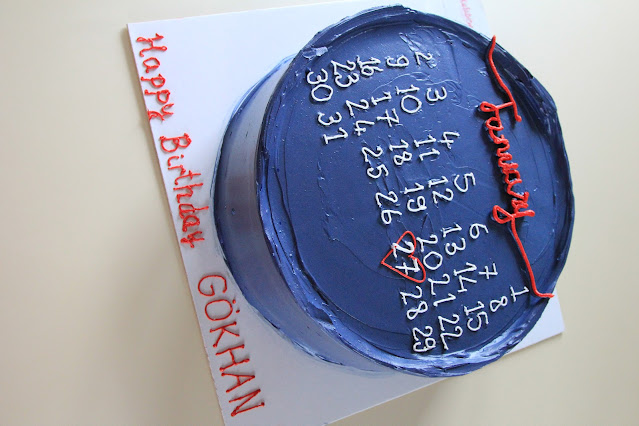 January
1
2 3 4 5 6 7 8
9 10 11 12 13 14 15
16 17 18 19 20 21 22
23 24 25 26 27 28 29
30 31
Happy Birthday GÖKHAN